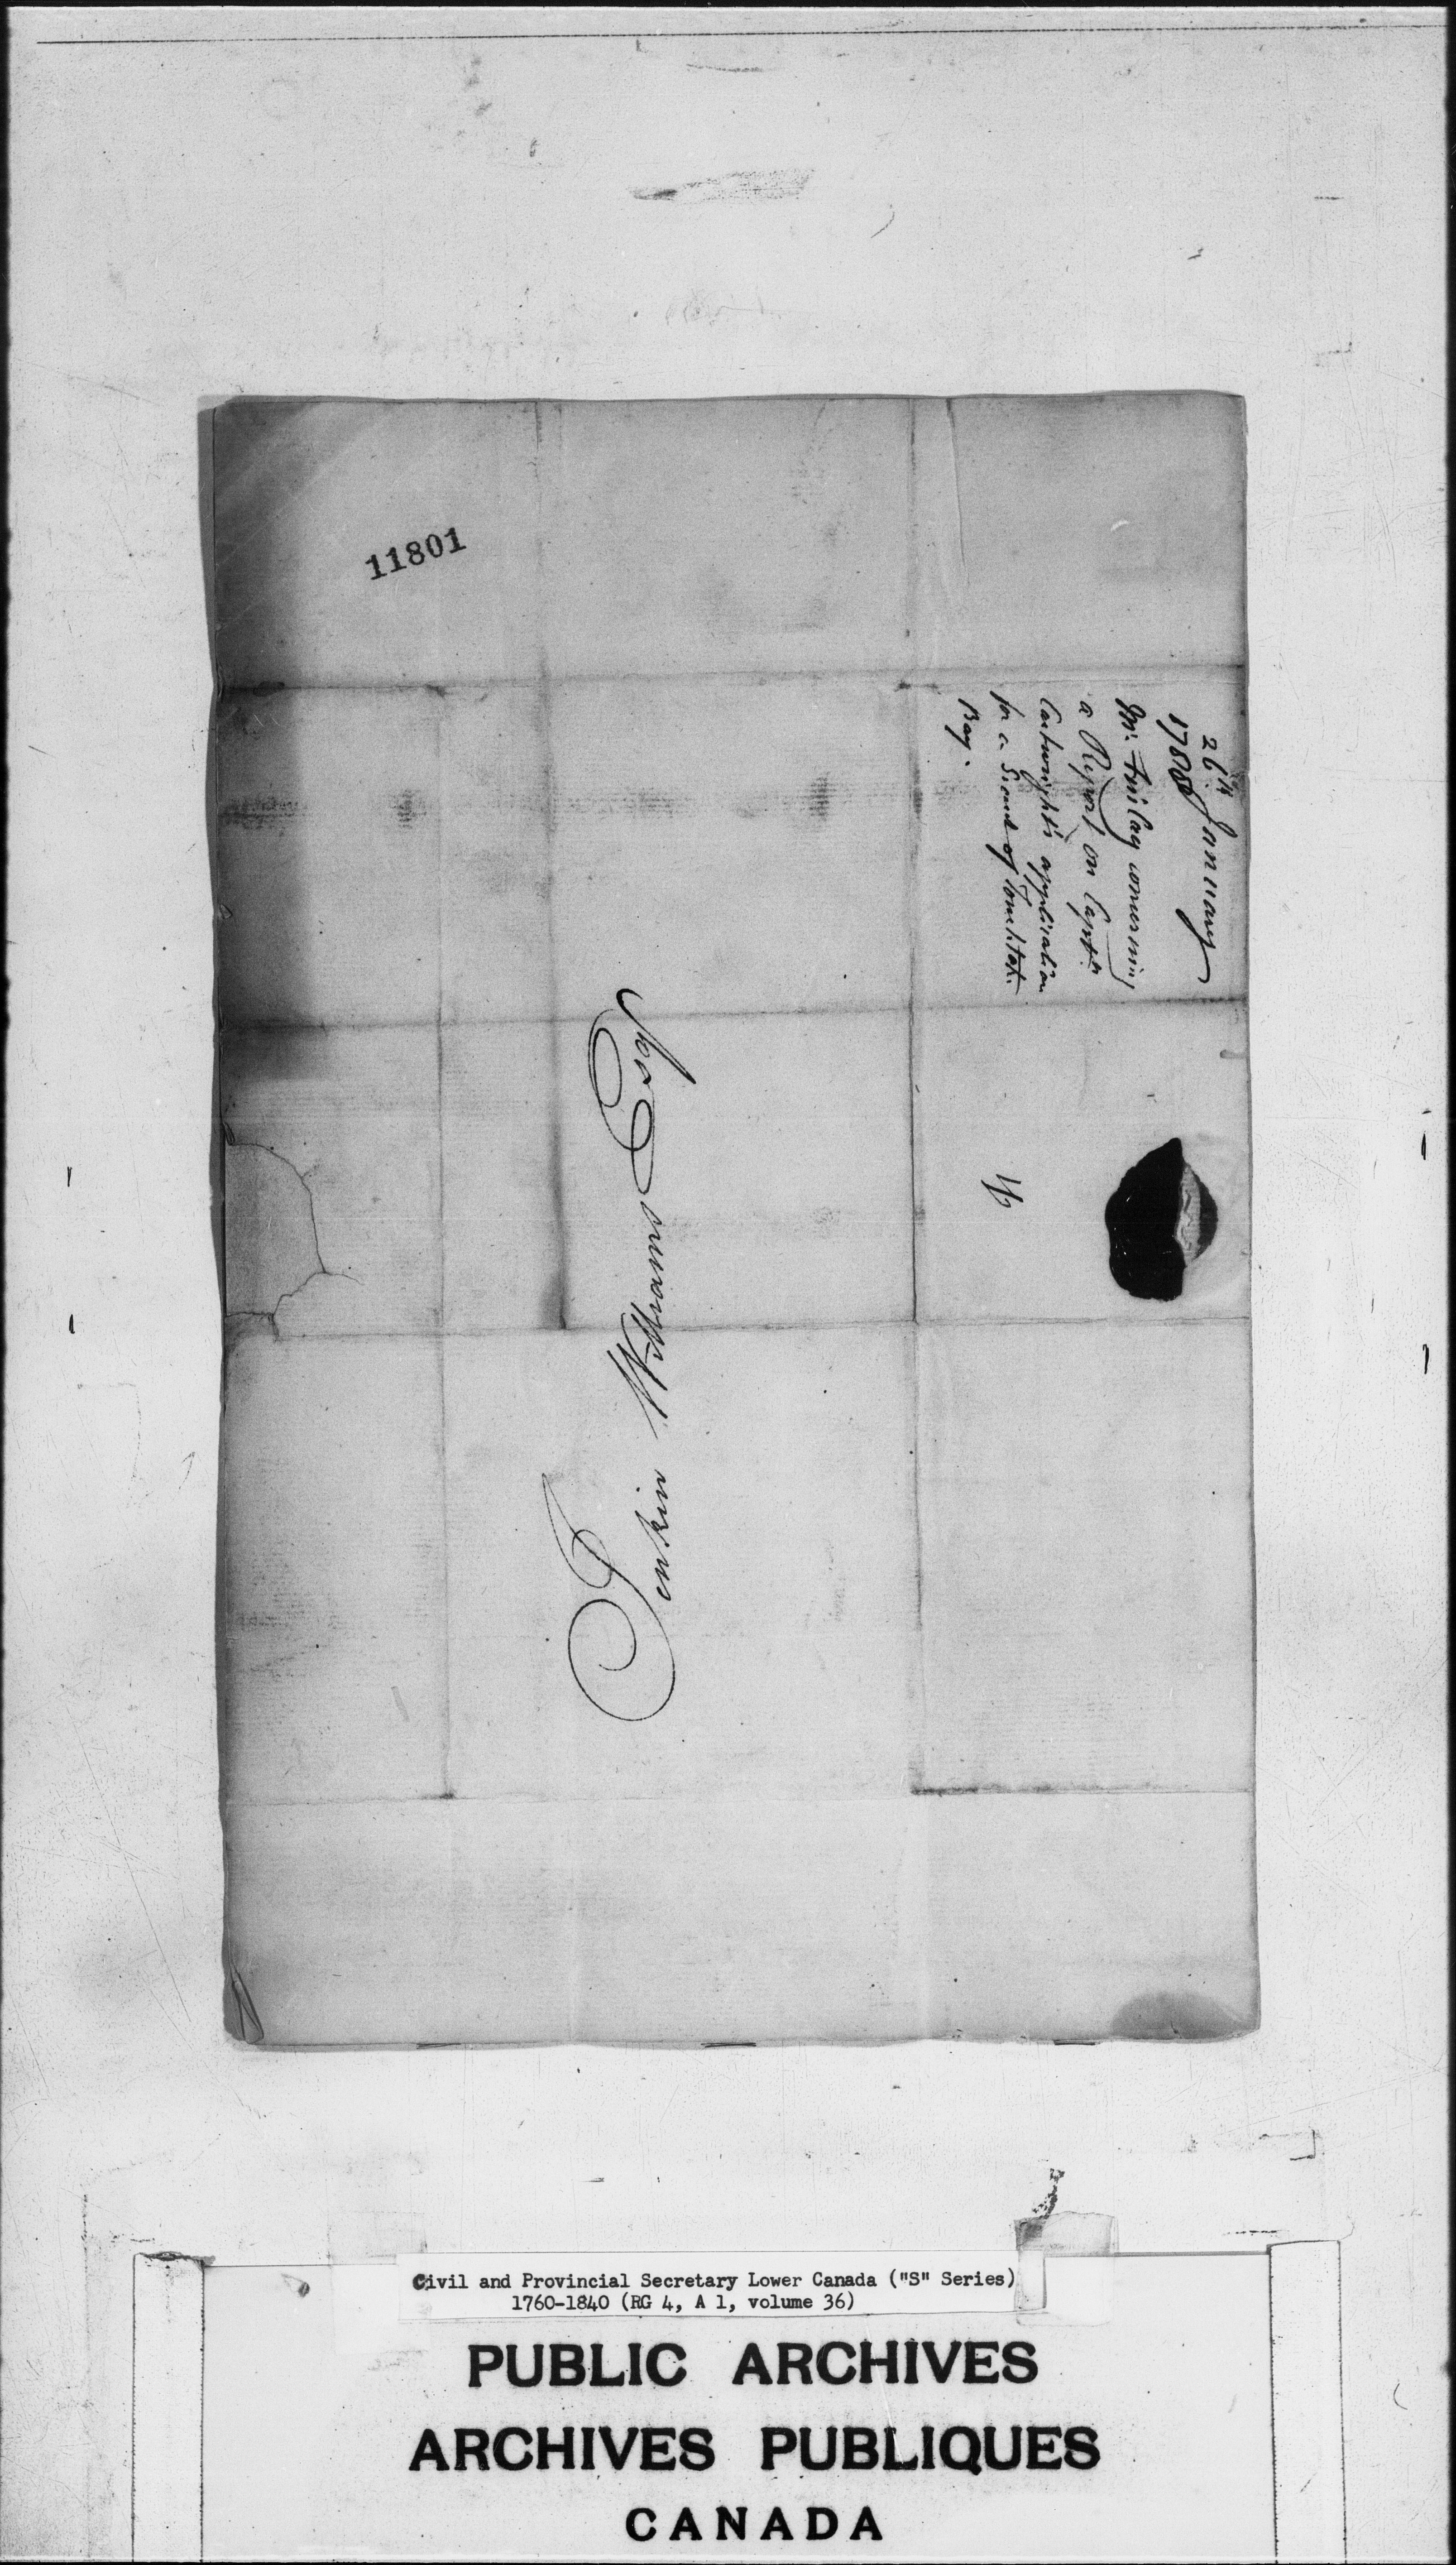 11801
26th January
1788
Mr. Finlay concerning
a Report on Captn
Cartwright's application
for a Grant of
Bay.
Jenkin Williams Esqr
Civil and Provincial Secretary Lower Canada ("S" Series)
1760-1840 (RG 4, A 1, volume 36)
PUBLIC ARCHIVES
ARCHIVES PUBLIQUES
CANADA